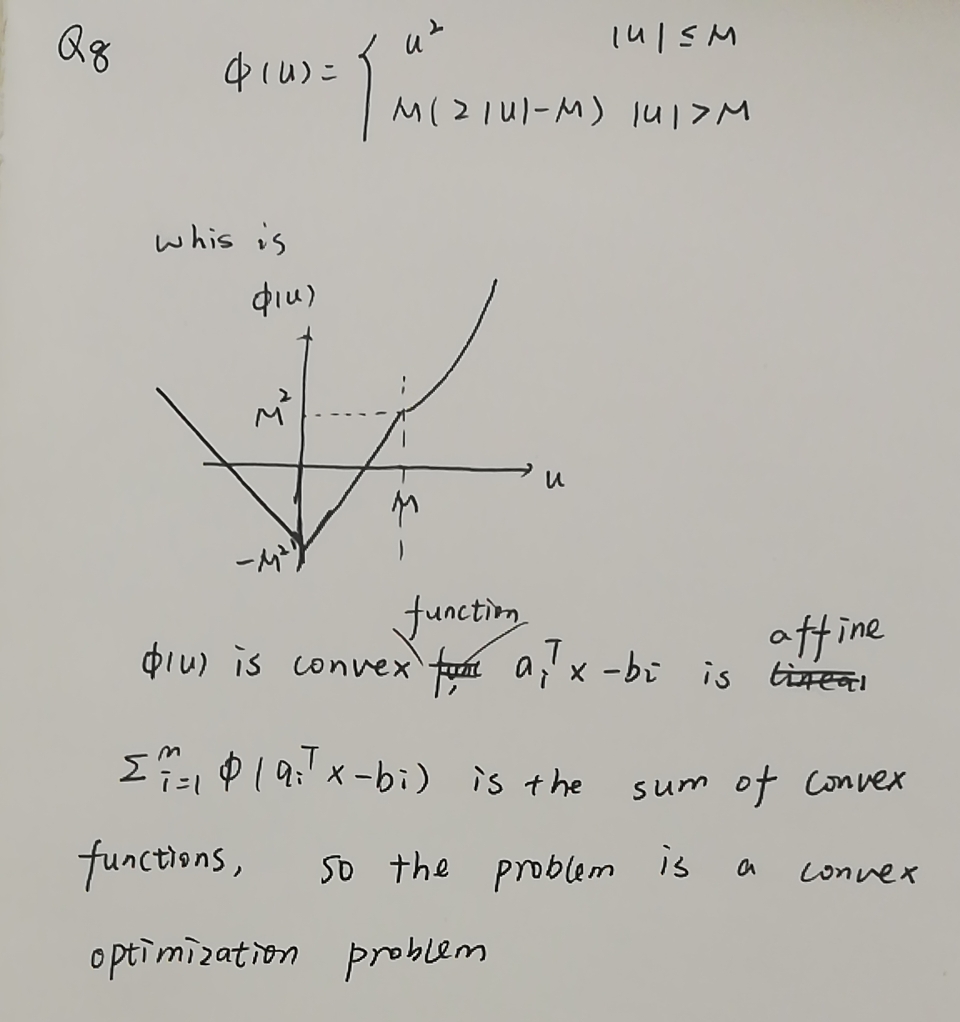 Q8
ϕ(u) = { u² |u| ≤ M
M(2|u|-M) |u| > M
whis is
ϕ(u)
M²
u
M
-M²
function
ϕ(u) is convex func aᵢᵀx - bi is linear affine
Σᵐᵢ₌₁ ϕ(aᵢᵀx - bi) is the sum of convex
functions, so the problem is a convex
optimization problem